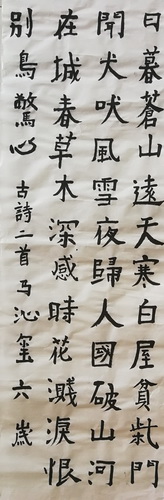 日暮蒼山遠天寒白屋貧柴門
聞犬吠風雪夜歸人國破山河
在城春草木深感時花濺淚恨
別鳥驚心 古詩二首 马沁 六歲